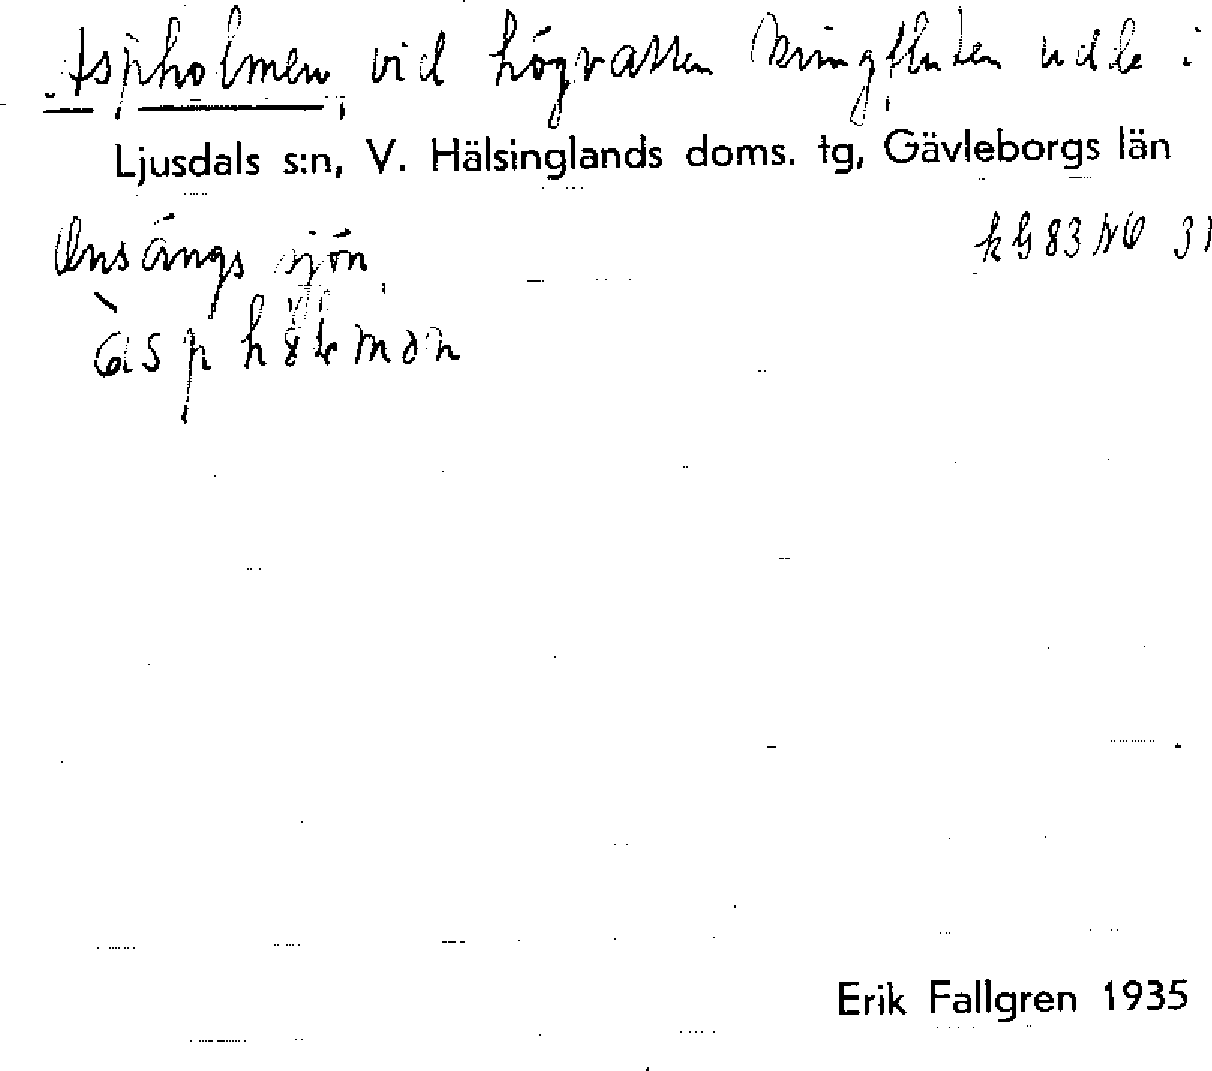 Aspholmen, vid högvatten kringfluten udde i
Ljusdals s:n, V. Hälsinglands doms. tg, Gävleborgs län
Onsängs sjön.
kG83NO 31
Erik Fallgren 1935